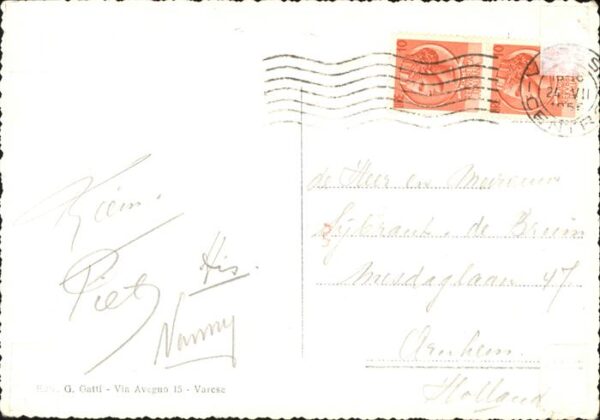 10
10
24 VII
Riem.
Piet
His.
Nanny
G. Gatti - Via Avegno 15 - Varese
de Heer en Mevrouw
Sijbrant. de Bruin
Mesdaglaan 47
Arnhem.
Holland